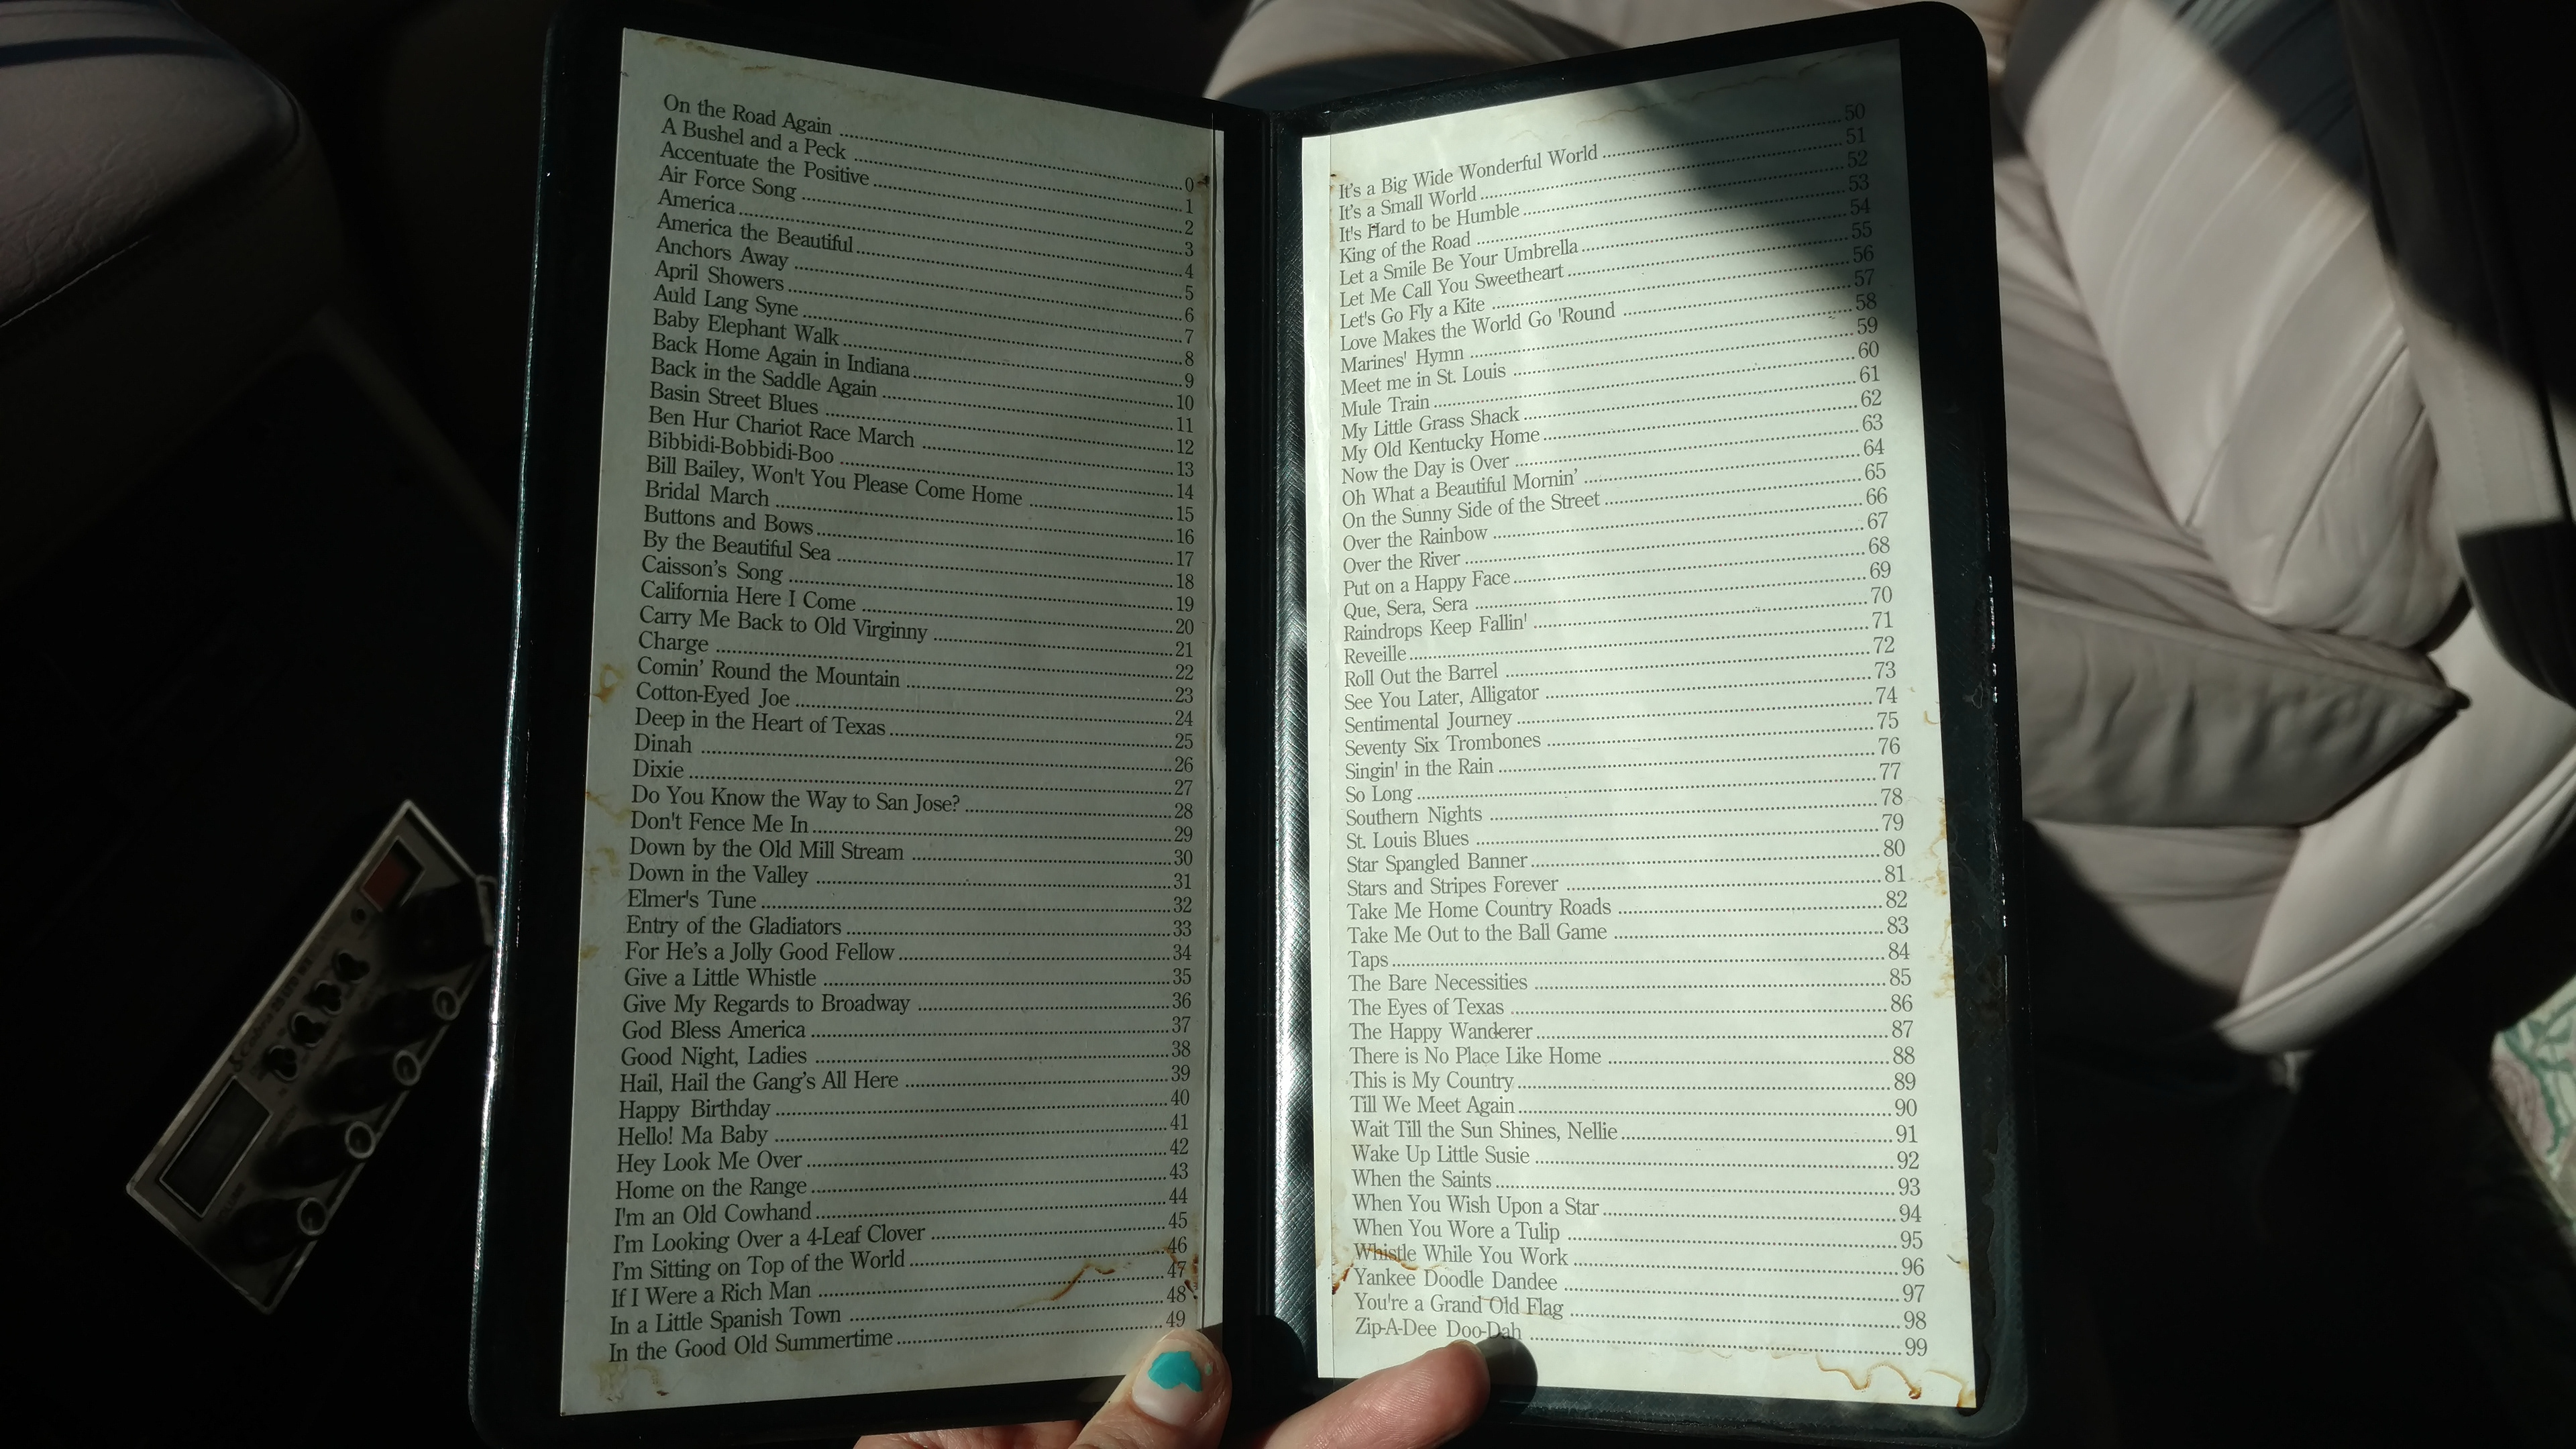 On the Road Again ........ 0
A Bushel and a Peck ........ 1
Accentuate the Positive ........ 2
Air Force Song ........ 3
America ........ 4
America the Beautiful ........ 5
Anchors Away ........ 6
April Showers ........ 7
Auld Lang Syne ........ 8
Baby Elephant Walk ........ 9
Back Home Again in Indiana ........ 10
Back in the Saddle Again ........ 11
Basin Street Blues ........ 12
Ben Hur Chariot Race March ........ 13
Bibbidi-Bobbidi-Boo ........ 14
Bill Bailey, Won't You Please Come Home ........ 15
Bridal March ........ 16
Buttons and Bows ........ 17
By the Beautiful Sea ........ 18
Caisson's Song ........ 19
California Here I Come ........ 20
Carry Me Back to Old Virginny ........ 21
Charge ........ 22
Comin' Round the Mountain ........ 23
Cotton-Eyed Joe ........ 24
Deep in the Heart of Texas ........ 25
Dinah ........ 26
Dixie ........ 27
Do You Know the Way to San Jose? ........ 28
Don't Fence Me In ........ 29
Down by the Old Mill Stream ........ 30
Down in the Valley ........ 31
Elmer's Tune ........ 32
Entry of the Gladiators ........ 33
For He's a Jolly Good Fellow ........ 34
Give a Little Whistle ........ 35
Give My Regards to Broadway ........ 36
God Bless America ........ 37
Good Night, Ladies ........ 38
Hail, Hail the Gang's All Here ........ 39
Happy Birthday ........ 40
Hello! Ma Baby ........ 41
Hey Look Me Over ........ 42
Home on the Range ........ 43
I'm an Old Cowhand ........ 44
I'm Looking Over a 4-Leaf Clover ........ 45
I'm Sitting on Top of the World ........ 46
If I Were a Rich Man ........ 47
In a Little Spanish Town ........ 48
In the Good Old Summertime ........ 49
It's a Big Wide Wonderful World ........ 50
It's a Small World ........ 51
It's Hard to be Humble ........ 52
King of the Road ........ 53
Let a Smile Be Your Umbrella ........ 54
Let Me Call You Sweetheart ........ 55
Let's Go Fly a Kite ........ 56
Love Makes the World Go 'Round ........ 57
Marines' Hymn ........ 58
Meet me in St. Louis ........ 59
Mule Train ........ 60
My Little Grass Shack ........ 61
My Old Kentucky Home ........ 62
Now the Day is Over ........ 63
Oh What a Beautiful Mornin' ........ 64
On the Sunny Side of the Street ........ 65
Over the Rainbow ........ 66
Over the River ........ 67
Put on a Happy Face ........ 68
Que, Sera, Sera ........ 69
Raindrops Keep Fallin' ........ 70
Reveille ........ 71
Roll Out the Barrel ........ 72
See You Later, Alligator ........ 73
Sentimental Journey ........ 74
Seventy Six Trombones ........ 75
Singin' in the Rain ........ 76
So Long ........ 77
Southern Nights ........ 78
St. Louis Blues ........ 79
Star Spangled Banner ........ 80
Stars and Stripes Forever ........ 81
Take Me Home Country Roads ........ 82
Take Me Out to the Ball Game ........ 83
Taps ........ 84
The Bare Necessities ........ 85
The Eyes of Texas ........ 86
The Happy Wanderer ........ 87
There is No Place Like Home ........ 88
This is My Country ........ 89
Till We Meet Again ........ 90
Wait Till the Sun Shines, Nellie ........ 91
Wake Up Little Susie ........ 92
When the Saints ........ 93
When You Wish Upon a Star ........ 94
When You Wore a Tulip ........ 95
Whistle While You Work ........ 96
Yankee Doodle Dandee ........ 97
You're a Grand Old Flag ........ 98
Zip-A-Dee Doo-Dah ........ 99